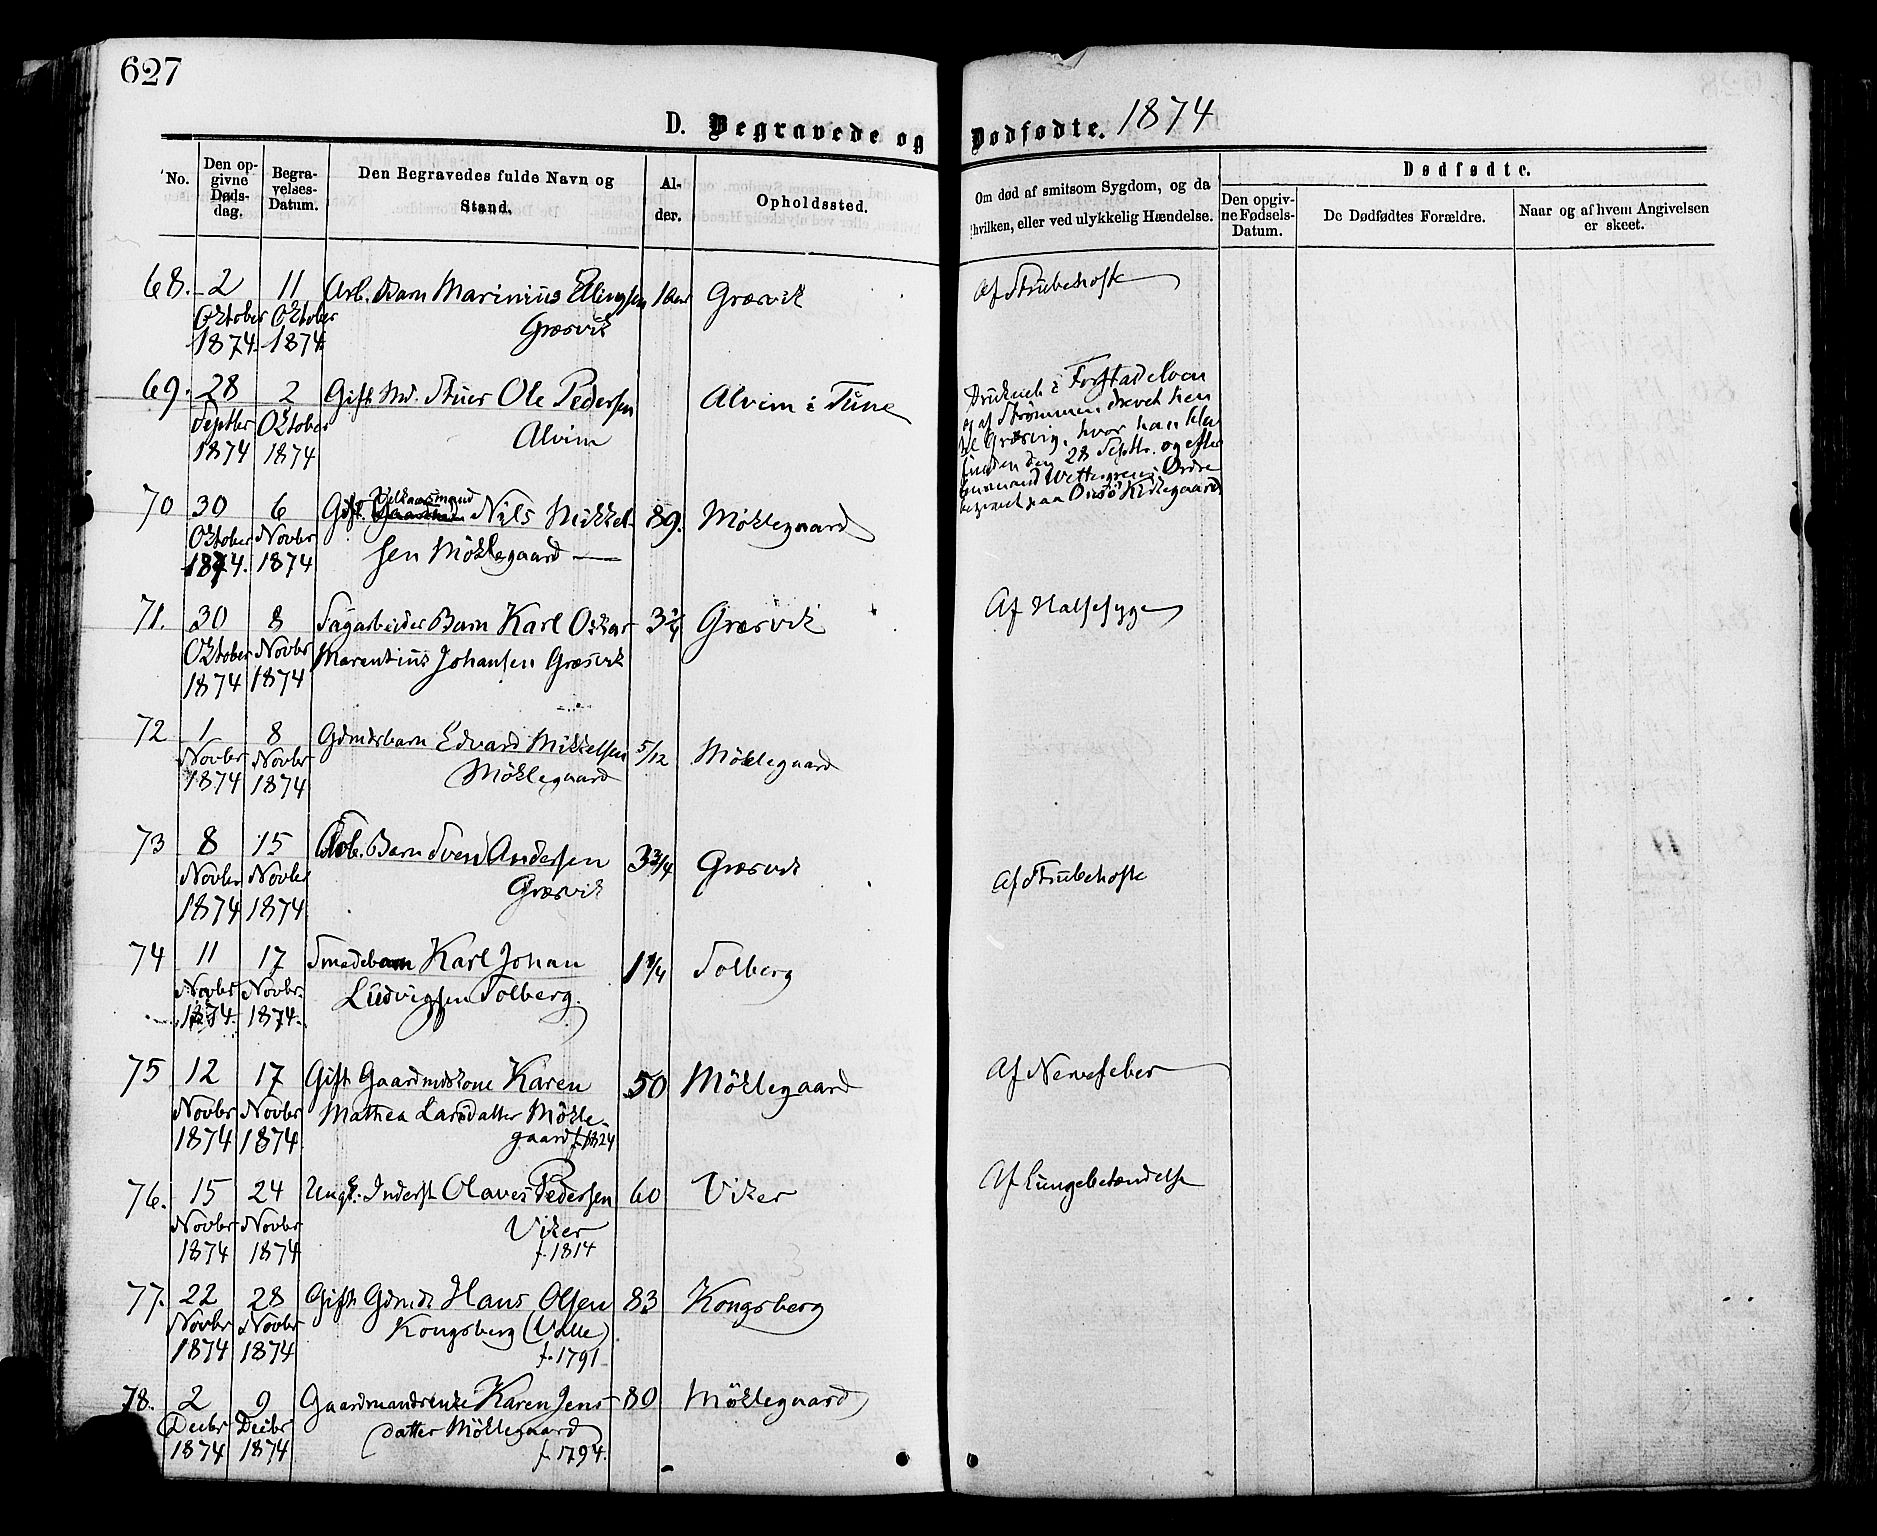 627
D. Begravede og Dødfødte. 1874
No.
Den opgivne Dødsdag.
Begravelses-Datum.
Den Begravedes fulde Navn og Stand.
Alder.
Opholdssted.
Om død af smitsom Sygdom, og da hvilken, eller ved ulykkelig Hændelse.
Dødfødte.
Den opgivne Fødsels-Datum.
De Dødfødtes Forældre.
Naar og af hvem Angivelsen er skeet.
68. 2 11 Arb. Barn Marinius Ellingsen 1 Aar Græsvik Af Strubehoste
Oktober Oktober Græsvik
1874 1874
69. 28 2 Gift Md. Stuer Ole Pedersen Alvim i Tune
Septbr Oktober Alvim
1874 1874
Druknet i Forstadelven
og af Strømmen drevet hen
til Græsvig, hvor han blev
funden den 28 Septbr. og efter
Wettergrens Ordre
begravet paa Onsø Kirkegaard
70 30 6 Gift Nils Mikkel- 89. Møklegaard
Oktober Novbr sen Møklegaard
1874. 1874
71. 30 8 Sagarbeider Barn Karl Oskar 3 1/4 Græsvik Af Halssyge
Oktober Novbr Marentius Johansen Græsvik
1874 1874
72 1 8 Gdmdsbarn Edvard Mikkelsen 5/12 Møklegaard
Novbr Novbr Møklegaard
1874 1874
73 8 15 Arb. Barn Sven Andersen 3 3/4 Græsvik Af Strubehoste
Novbr Novbr Græsvik
1874 1874
74 11 17 Smedebarn Karl Johan 1 1/4 Solberg
Novbr Novbr. Ludvigsen Solberg.
1874. 1874.
75 12 17 Gift Gaardmdskone Karen 50 Møklegaard Af Nervefeber
Novbr Novbr Mathea Larsdatter Møkle-
1874 1874 gaard f. 1824
76. 15 24 Ungk. Inderst Olaves Pedersen 60 Viker Af Lungebetændelse
Novbr Novbr Viker
1874 1874 f. 1814
77. 22 28 Gift Gdmd. Hans Olsen 83 Kongsberg
Novbr Novbr Kongsberg (Valle)
1874 1874 f. 1791
78. 2 9 Gaardmandsenke Karen Jens- 80 Møklegaard
Decbr Decbr datter Møklegaard
1874 1874 f. 1794.